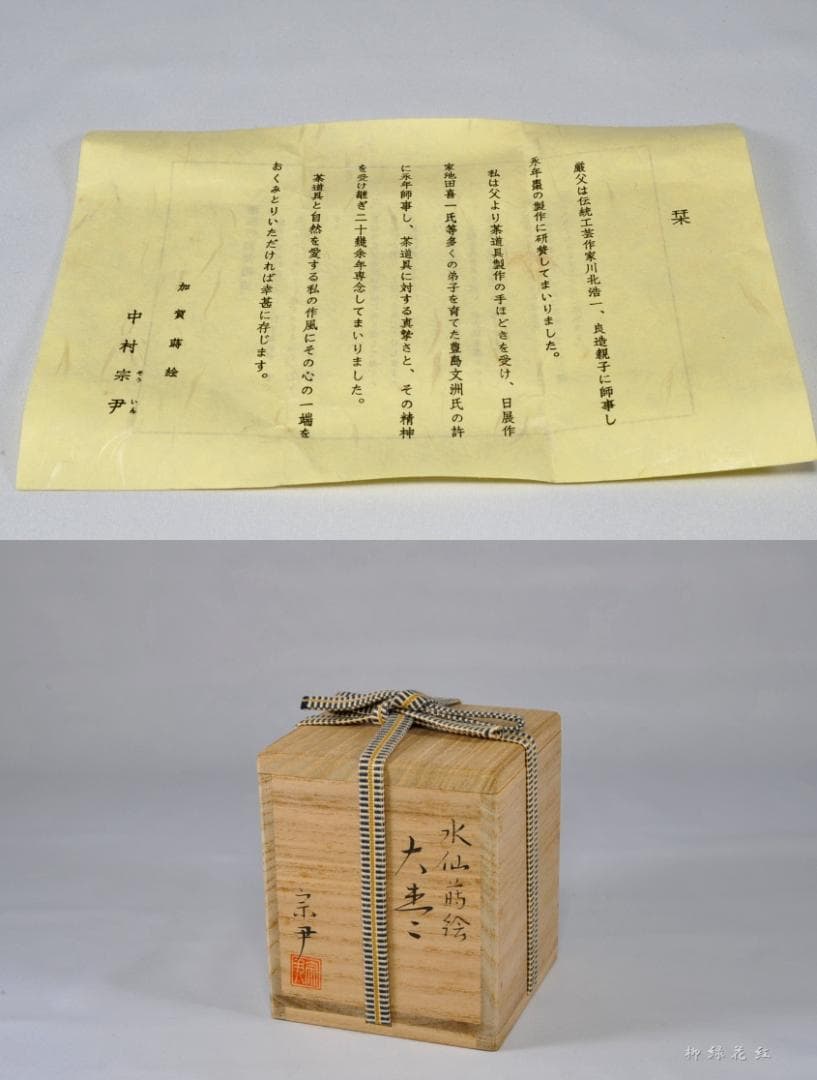 栞
厳父は伝統工芸作家川北浩一、良造親子に師事し
永年棗の製作に研賛してまいりました。
私は父より茶道具製作の手ほどきを受け、日展作
家池田喜一氏等多くの弟子を育てた豊島文洲氏の許
に永年師事し、茶道具に対する真摯さと、その精神
を受け継ぎ二十幾余年専念してまいりました。
茶道具と自然を愛する私の作風にその心の一端を
おくみとりいただければ幸甚に存じます。
加賀蒔絵
中村宗尹
そういん
水仙蒔絵
大棗
宗尹
柳緑花紅